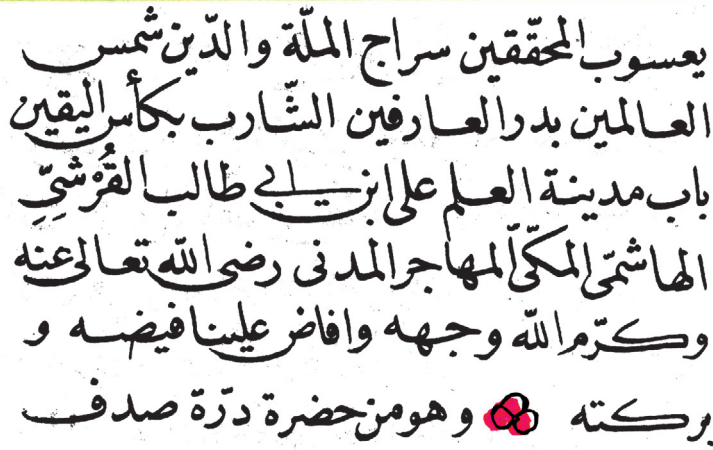 يعسوب المحقّقين سراج الملّة والدّين شمس
العالمين بدر العارفين الشّارب بكأس اليقين
باب مدينة العلم على ابن ابى طالب القُرْشِىِّ
الهاشمّى المكّى المهاجر المدنى رضى الله تعالى عنه
وكرّم الله وجهه وافاض علينا فيضه و
بركته وهو من حضرة درّة صدف